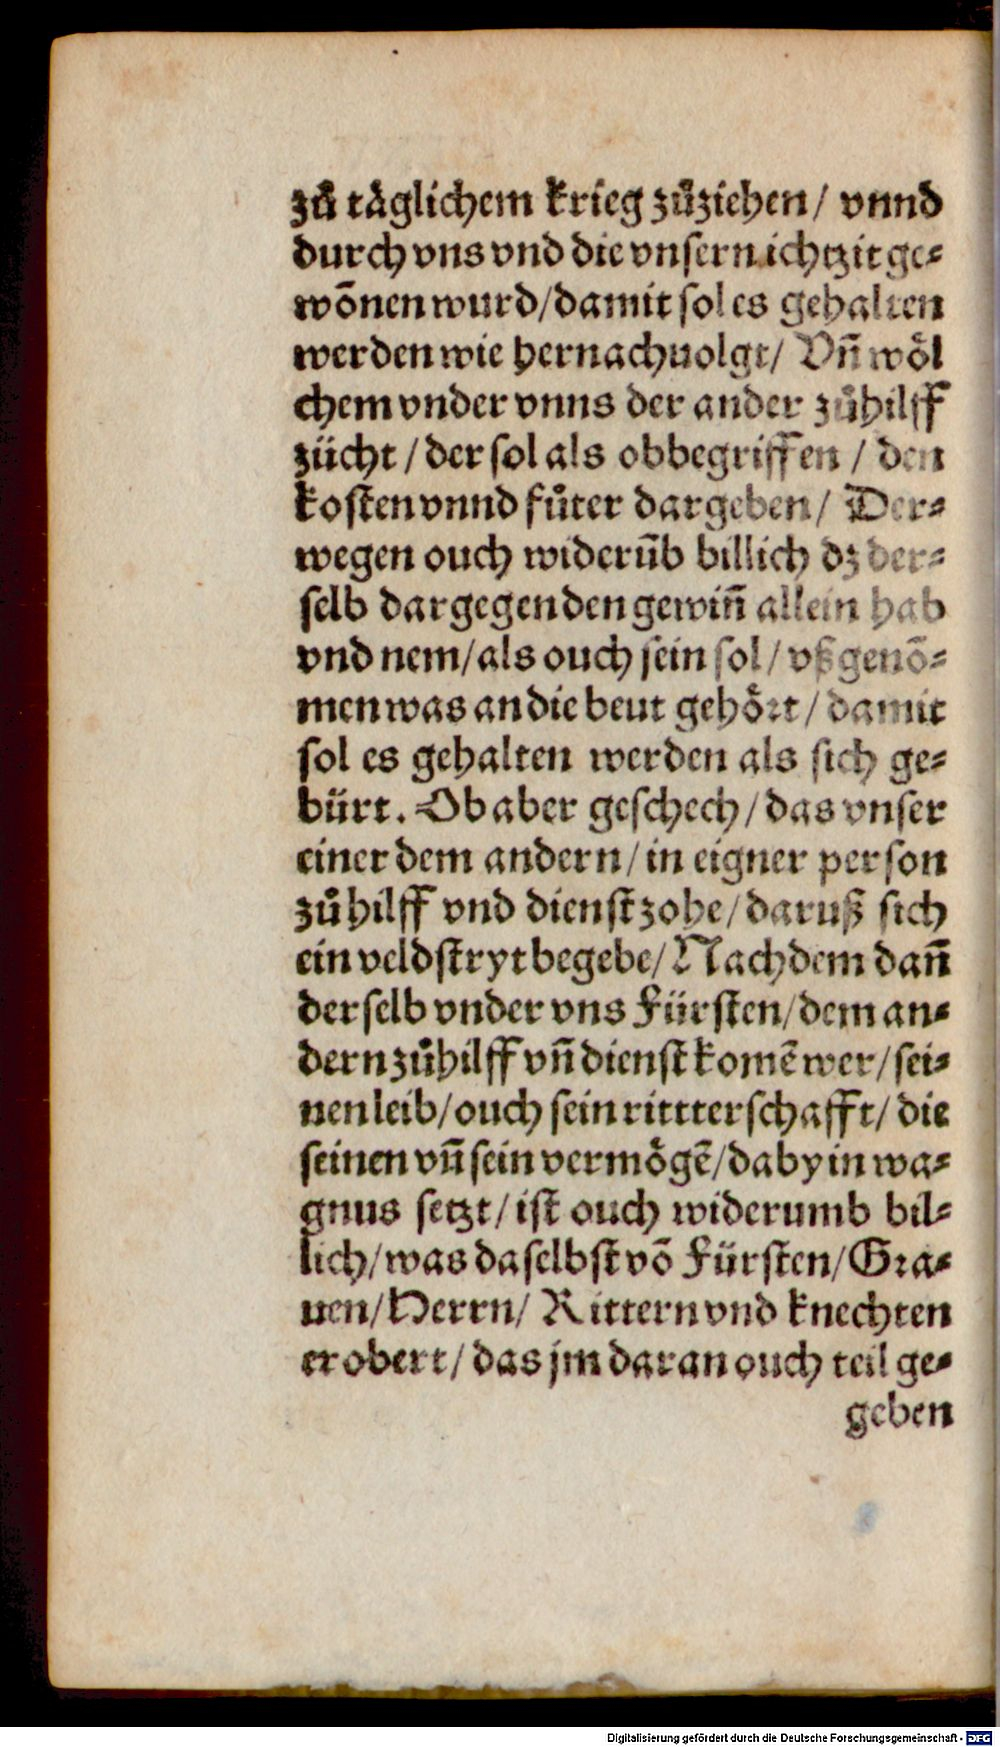 zů täglichem krieg zůziehen/ vnnd
durch vns vnd die vnsern ichtzit ge-
wōnen wurd/damit sol es gehalten
werden wie hernachuolgt/ Vn̄ wöl
chem vnder vnns der ander zůhilff
zücht / der sol als obbegriffen / den
kosten vnnd fůter dargeben/ Der-
wegen ouch widerūb billich dz der-
selb dargegen den gewin̄ allein hab
vnd nem/als ouch sein sol/ vßgenō-
men was an die beut gehört / damit
sol es gehalten werden als sich ge-
bürt. Ob aber geschech/das vnser
einer dem andern/in eigner person
zůhilff vnd dienst zohe/daruß sich
ein veldstryt begebe/Nachdem dan̄
derselb vnder vns Fürsten/dem an-
dern zůhilff vn̄ dienst komē wer/sei-
nen leib/ouch sein rittterschafft/ die
seinen vn̄ sein vermögē/daby in wa-
gnus setzt/ist ouch widerumb bil-
lich/was daselbst vō Fürsten/Gra-
uen/Herrn/ Rittern vnd knechten
erobert/das jm daran ouch teil ge-
geben
Digitalisierung gefördert durch die Deutsche Forschungsgemeinschaft - DFG